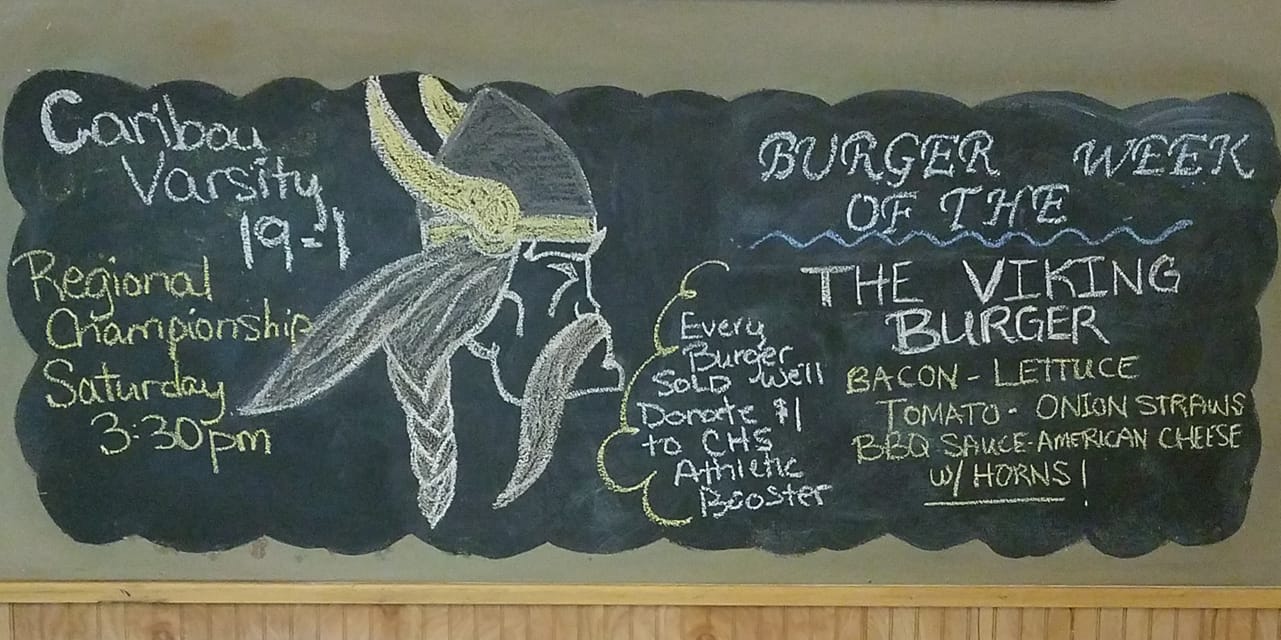 Caribou
Varsity
19-1
Regional
Championship
Saturday
3:30pm
Every
Burger
Sold We'll
Donate $1
to CHS
Athletic
Booster
BURGER WEEK
OF THE
THE VIKING
BURGER
BACON - LETTUCE
TOMATO - ONION STRAWS
BBQ SAUCE-AMERICAN CHEESE
W/ HORNS!